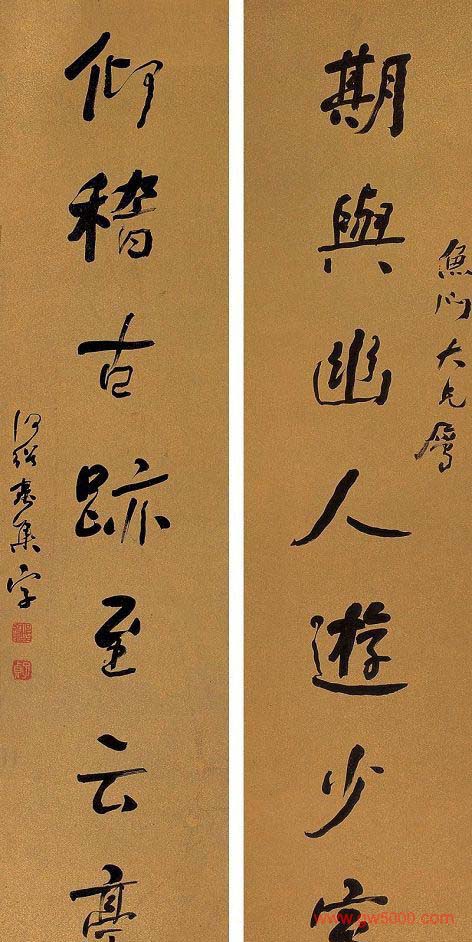 魚門大兄屬
期與幽人遊少室
仰稽古跡至云亭
何紹基集字
www.gw5000.com